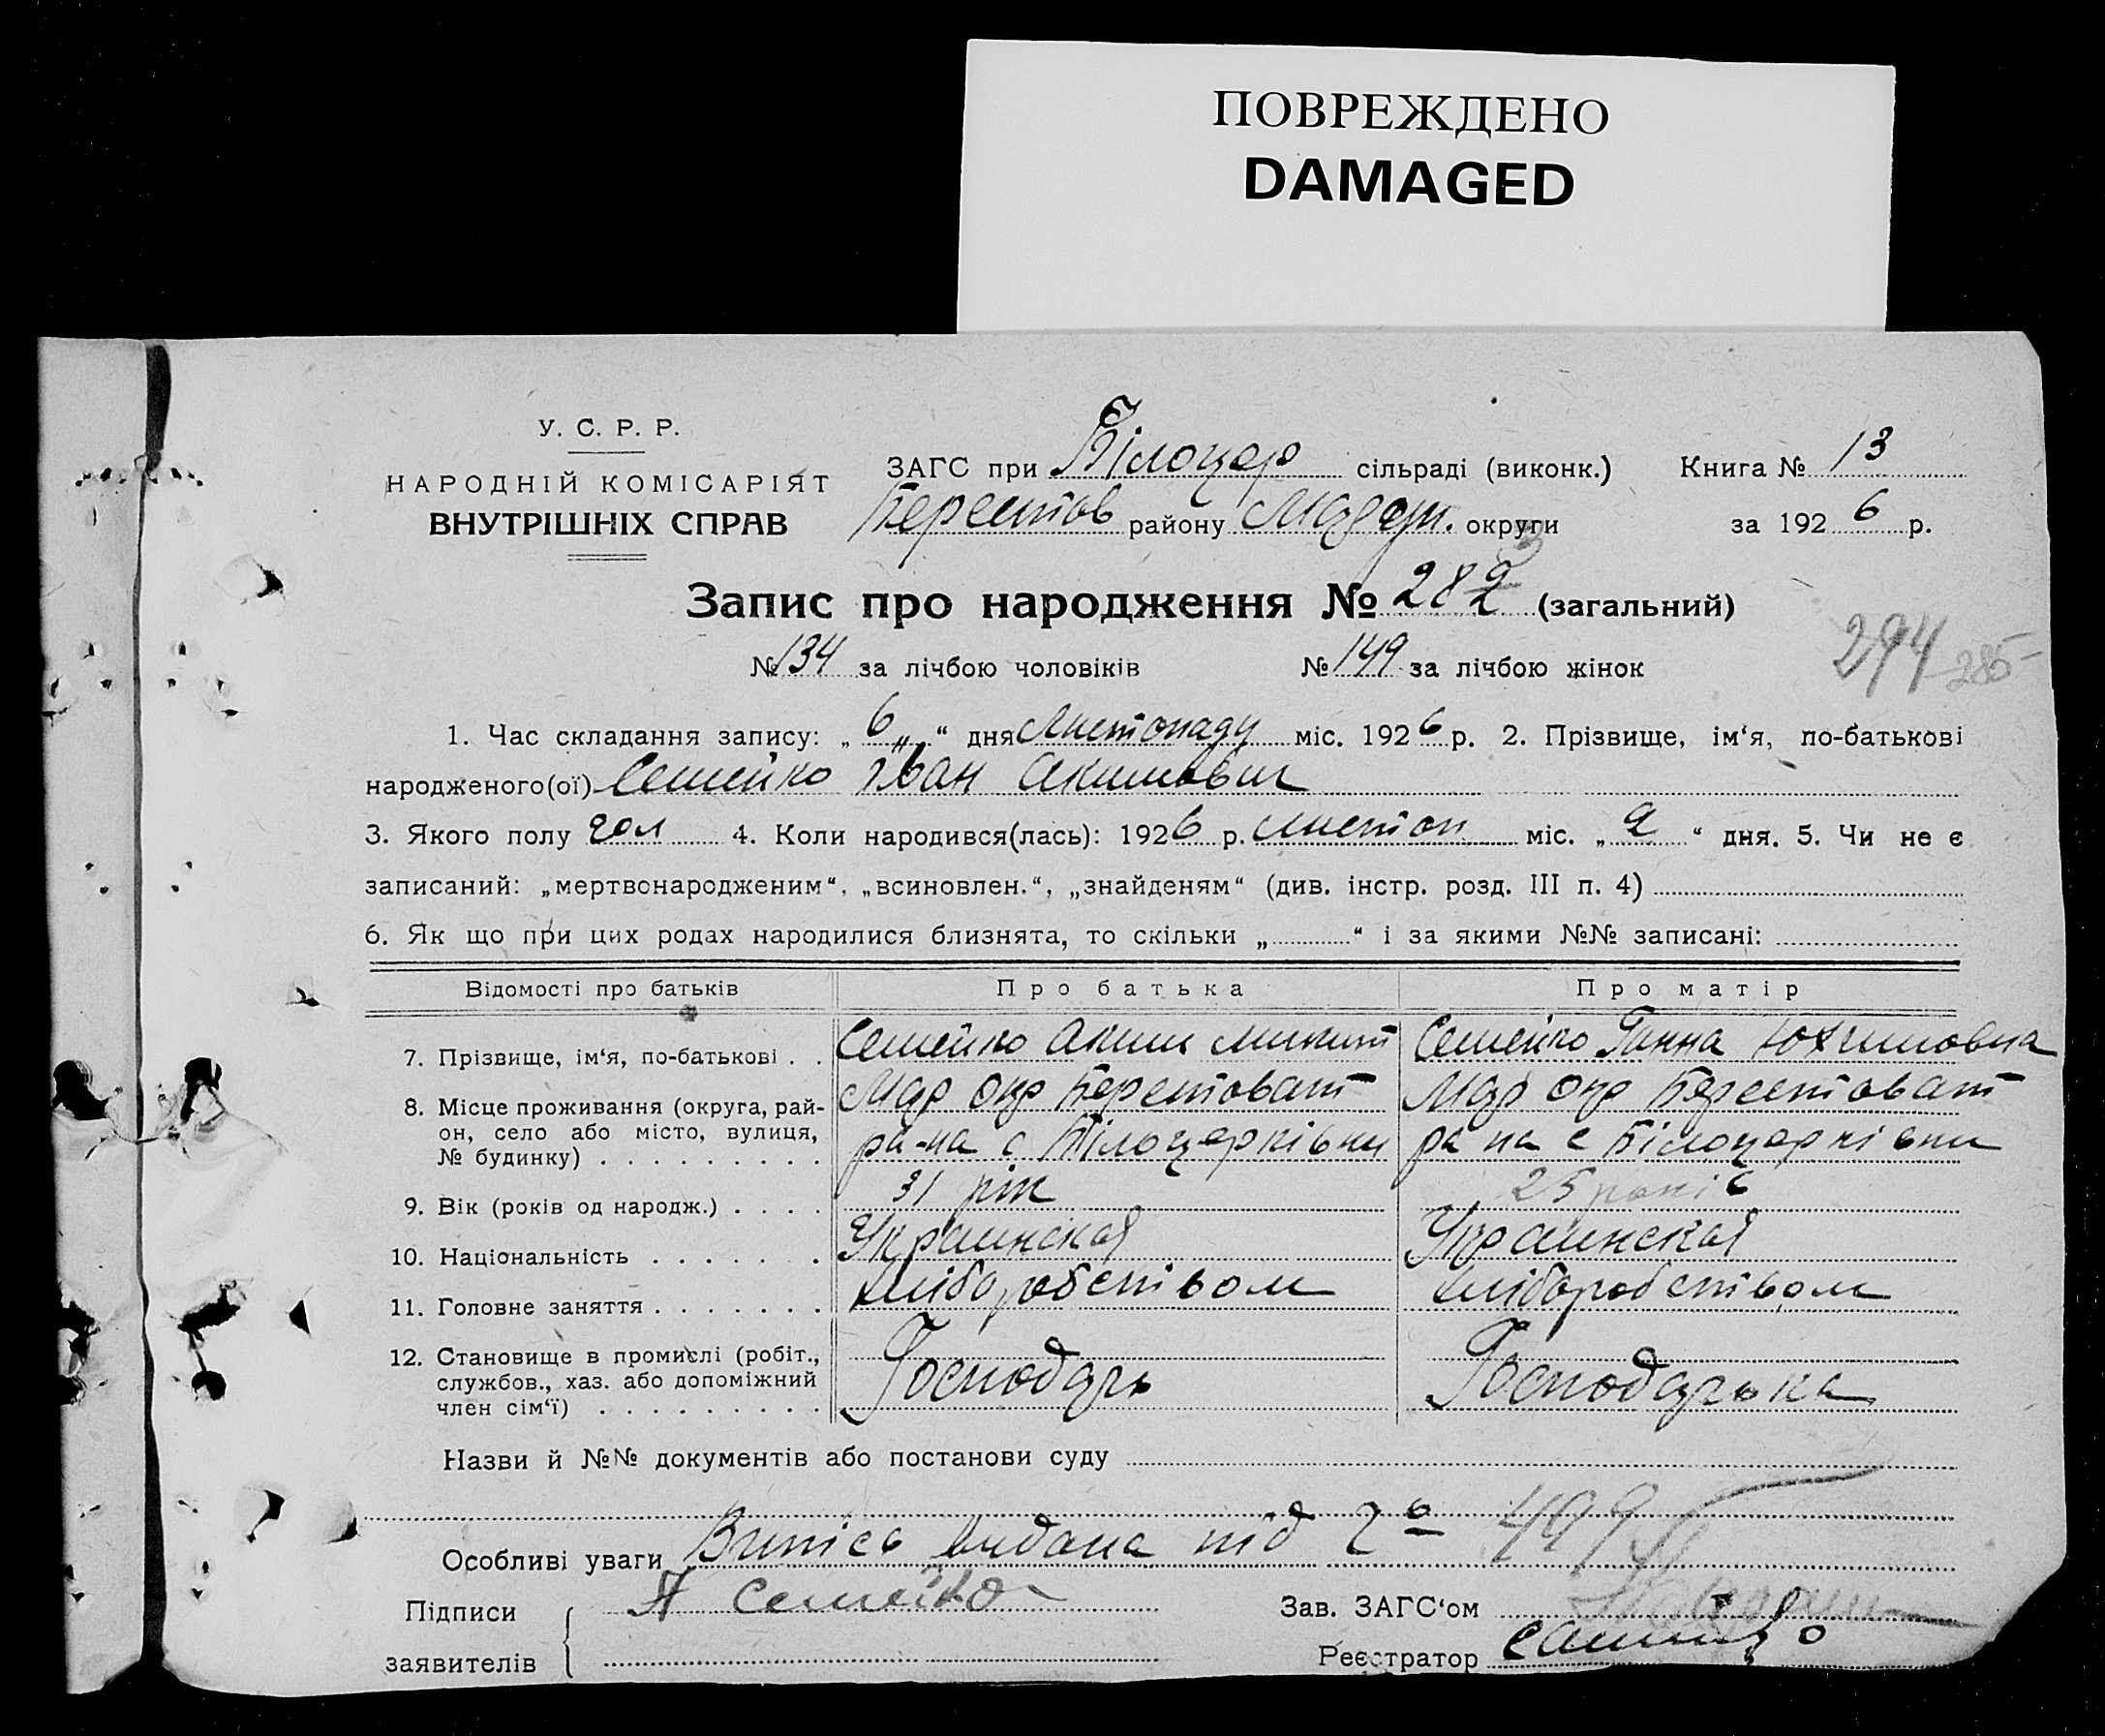 ПОВРЕЖДЕНО
DAMAGED
У. С. Р. Р.
НАРОДНІЙ КОМІСАРІЯТ
ВНУТРІШНІХ СПРАВ
ЗАГС при Білоцер сільраді (виконк.) Книга № 13
Берестов району округи за 1926 р.
Запис про народження № 282 3 (загальний)
№ 134 за лічбою чоловіків № 149 за лічбою жінок
294 285
1. Час складання запису: „ 6 „ “ дня Листопаду міс. 1926 р. 2. Прізвище, ім‘я, по-батькові
народженого(ої) Семейко Іван Акимович
3. Якого полу чол 4. Коли народився(лась): 1926 р. листоп міс. „ 2 “ дня. 5. Чи не є
записаний: „мертвонародженим“, „всиновлен.“, „знайденям“ (див. інстр. розд. III п. 4)
6. Як що при цих родах народилися близнята, то скільки „ “ і за якими №№ записані:
Відомості про батьків Про батька Про матір
7. Прізвище, ім‘я, по-батькові . . Семейко Аким Микит Семейко Ганна Юхимовна
8. Місце проживання (округа, рай- Мар окр Берестоват Мар окр Берестоват
он, село або місто, вулиця, ра-на с Білоцерківки ра на с Білоцерківки
№ будинку) . . . . . . . . .
9. Вік (років од народж.) . . . . 31 рік 25 років
10. Національність . . . . . . . Украинская Украинская
11. Головне заняття . . . . . . . хліборобством хліборобством
12. Становище в промислі (робіт.,
службов., хаз. або допоміжний Господарь Господарька
член сім‘ї) . . . . . . . . .
Назви й №№ документів або постанови суду
Особливі уваги Випісь видана під 499
Підписи А Семейко Зав. ЗАГС‘ом
заявителів Реєстратор